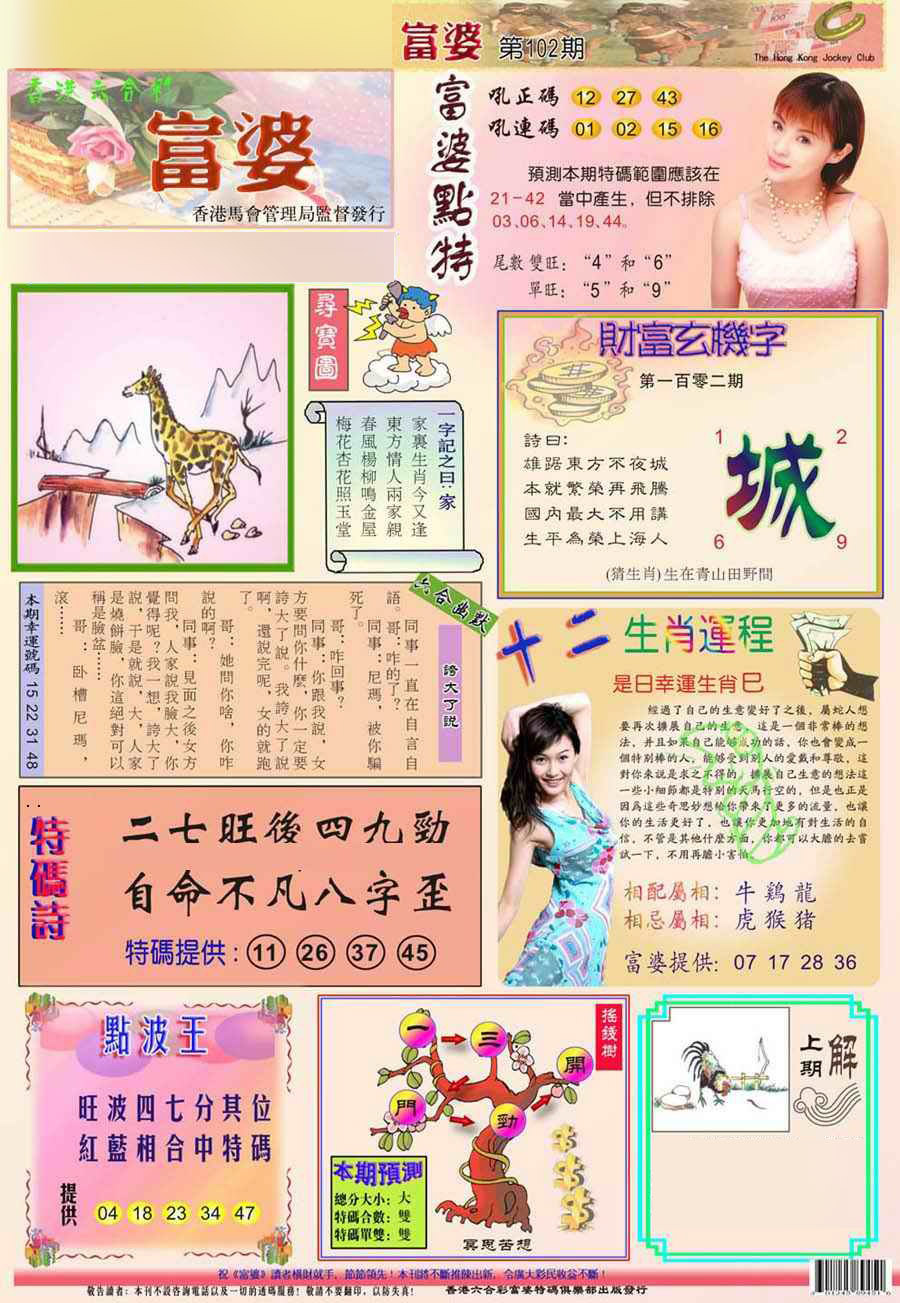 富婆 第102期
The Hong Kong Jockey Club
香港六合彩
富婆
香港馬會管理局監督發行
富婆點特
吼正碼 12 27 43
吼連碼 01 02 15 16
預測本期特碼範圍應該在
21-42 當中產生，但不排除
03、06、14、19、44。
尾數雙旺：“4”和“6”
單旺：“5”和“9”
尋寶圖
一字記之曰：家
家裏生肖今又逢
東方情人兩家親
春風楊柳鳴金屋
梅花杏花照玉堂
財富玄機字
第一百零二期
詩曰：
雄踞東方不夜城
本就繁榮再飛騰
國內最大不用講
生平為榮上海人
1 2
城
6 9
(猜生肖)生在青山田野間
六合幽默
誇大了說
同事一直在自言自
語。哥：咋的了？
同事：尼瑪，被你騙
死了。
哥：咋回事？
同事：你跟我說，女
方要問你什麼，你一定要
誇大了說。我誇大了說
啊，還說完呢，女的就跑
了。
哥：她問你啥，你咋
說的啊？
同事：見面之後女方
問我，人家說我臉大，你
覺得呢？我一想，誇大了
說，于是就說，大，人家
是燒餅臉，你這絕對可以
稱是臉盆……
哥：卧槽尼瑪，
滾……
本期幸運號碼 15 22 31 48
十二生肖運程
是日幸運生肖巳
經過了自己的生意變好了之後，屬蛇人想
要再次擴展自己的生意，這是一個非常棒的想
法，并且如果自己能够成功的話，你也會變成一
個特別棒的人，能够受到別人的愛戴和尊敬，這
對你來說是求之不得的，擴展自己生意的想法這
一些小細節都是特別的天馬行空的，但是也正是
因爲這些奇思妙想給你帶來了更多的流量，也讓
你的生活更好了，也讓你更加地有對生活的自
信，不管是其他什麽方面，你都可以大膽的去嘗
試一下，不用再膽小害怕。
相配屬相：牛 鷄 龍
相忌屬相：虎 猴 猪
富婆提供：07 17 28 36
特碼詩
二七旺後四九勁
自命不凡八字歪
特碼提供：11 26 37 45
點波王
旺波四七分其位
紅藍相合中特碼
提供 04 18 23 34 47
搖錢樹
一 三
開
門 勁
本期預測
總分大小：大
特碼合數：雙
特碼單雙：雙
冥思苦想
上期解
祝《富婆》讀者橫財就手，節節領先！本刊將不斷推陳出新，令廣大彩民收益不斷！
敬告讀者：本刊不設咨詢電話以及一切的透碼服務！敬請不要翻印，以防失真！ 香港六合彩富婆特碼俱樂部出版發行